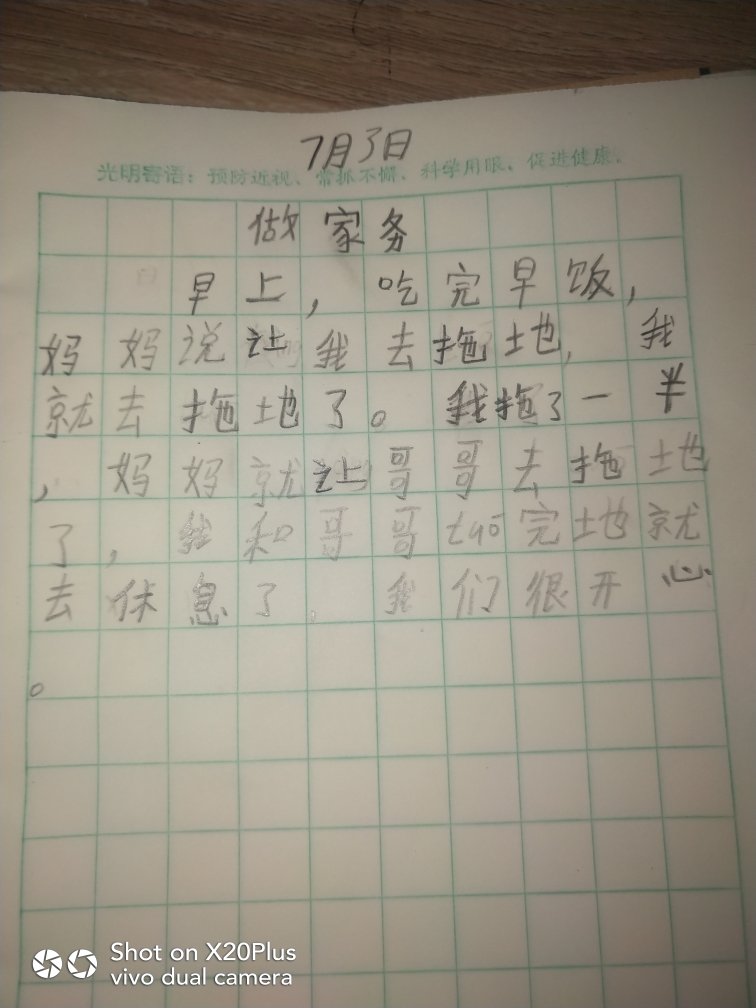 7月3日
光明寄语：预防近视、常抓不懈、科学用眼、促进健康。
做家务
早上，吃完早饭，
妈妈说让我去拖地，我
就去拖地了。我拖了一半
，妈妈就让哥哥去拖地
了，我和哥哥tuō完地就
去休息了.我们很开心
。
Shot on X20Plus
vivo dual camera